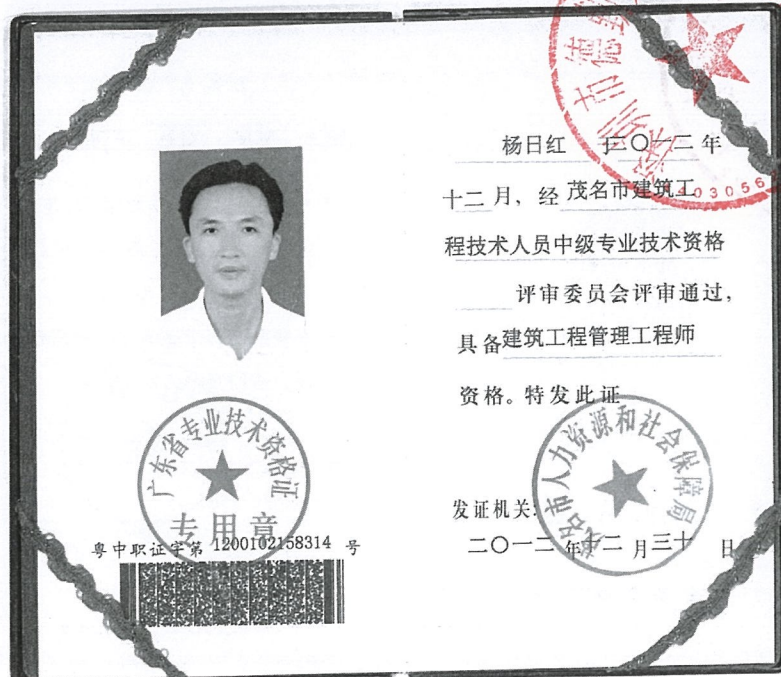 杨日红 于二〇一二年
十二月，经茂名市建筑工
程技术人员中级专业技术资格
评审委员会评审通过，
具备建筑工程管理工程师
资格。特发此证
发证机关：
二〇一二年十二月三十日
茂名市人力资源和社会保障局
广东省专业技术资格证
专用章
粤中职证字第 1200102158314 号
深圳市
403056